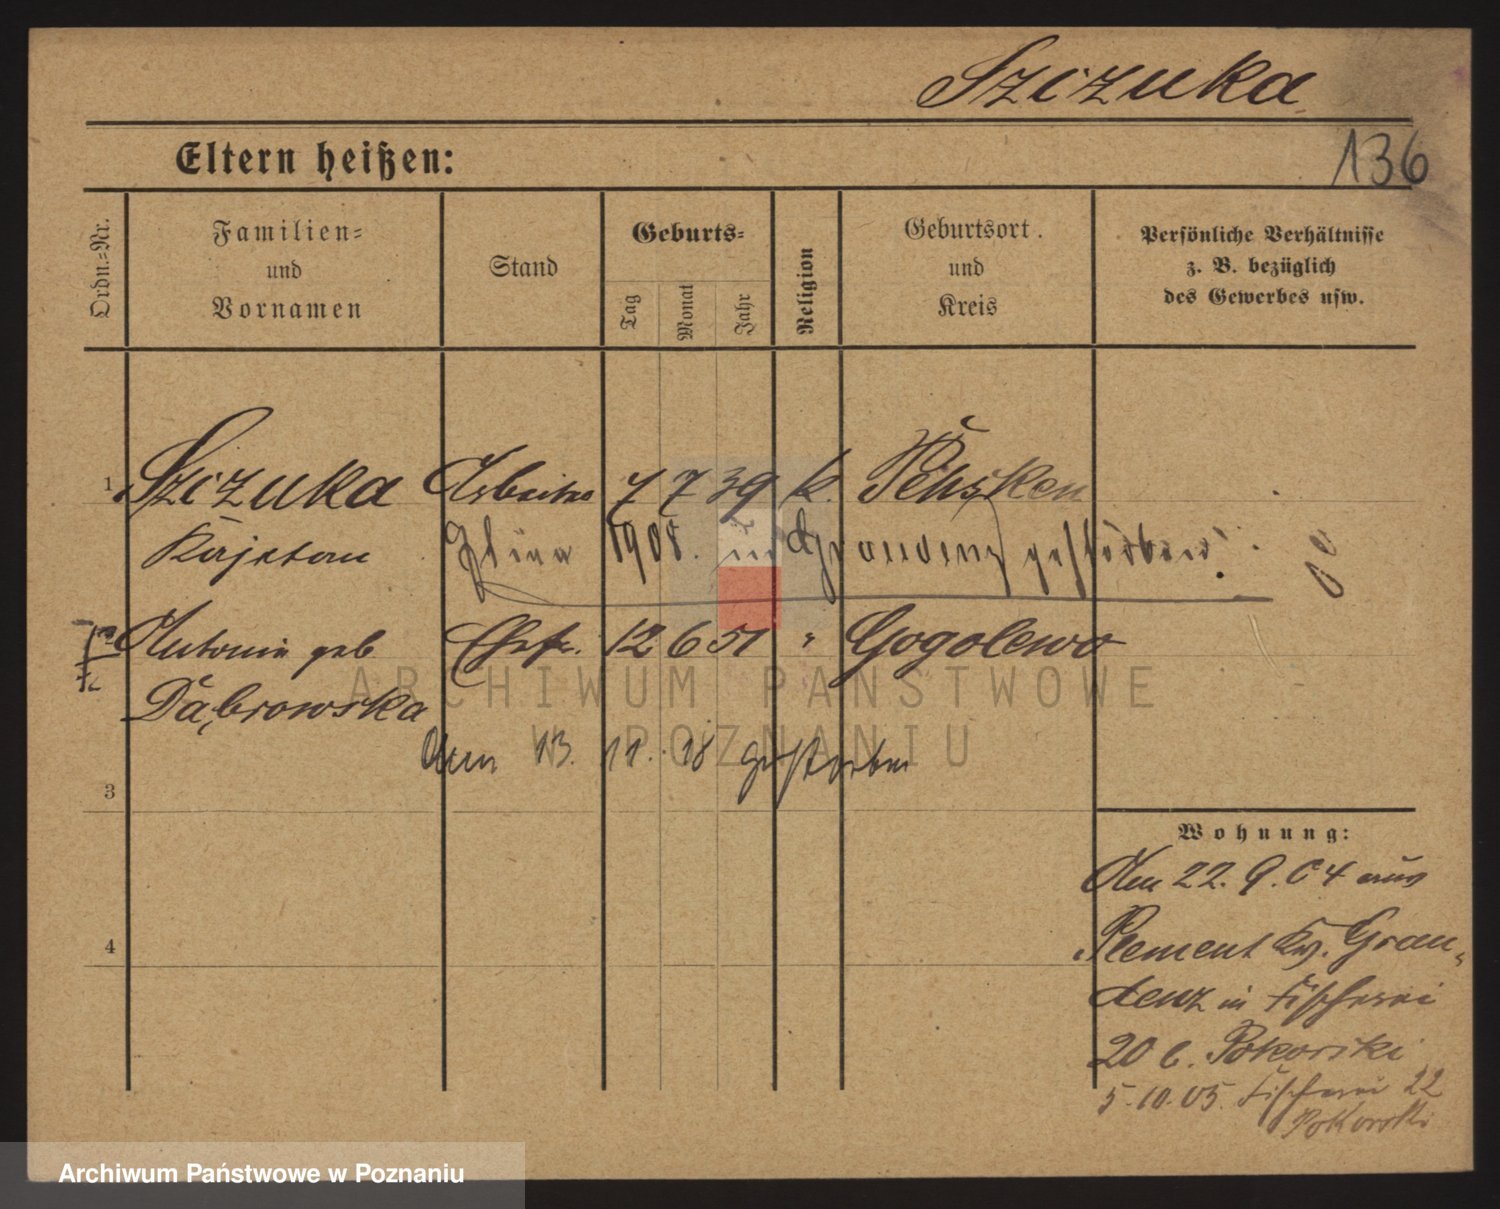 Szczuka
136
Eltern heißen:
Ordn.-Nr.
Familien-
und
Vornamen
Stand
Geburts-
Tag
Monat
Jahr
Religion
Geburtsort.
und
Kreis
Persönliche Verhältnisse
z. B. bezüglich
des Gewerbes usw.
1 Szczuka Arbeiter 7 7 39 k. Pehsken
Kajetan 1908. in Graudenz gestorben.
Antonie geb Ehefr. 12 6 51 " Gogolewo
Dąbrowska
Am 13. 11. 18 gestorben
3
4
Wohnung:
Am 22. 9. 04 aus
Plement Kr. Grau-
denz in Fischerei
20 b. Pokorski
5.10.05. Fischerei 22
Pokorski
ARCHIWUM PAŃSTWOWE
W POZNANIU
Archiwum Państwowe w Poznaniu